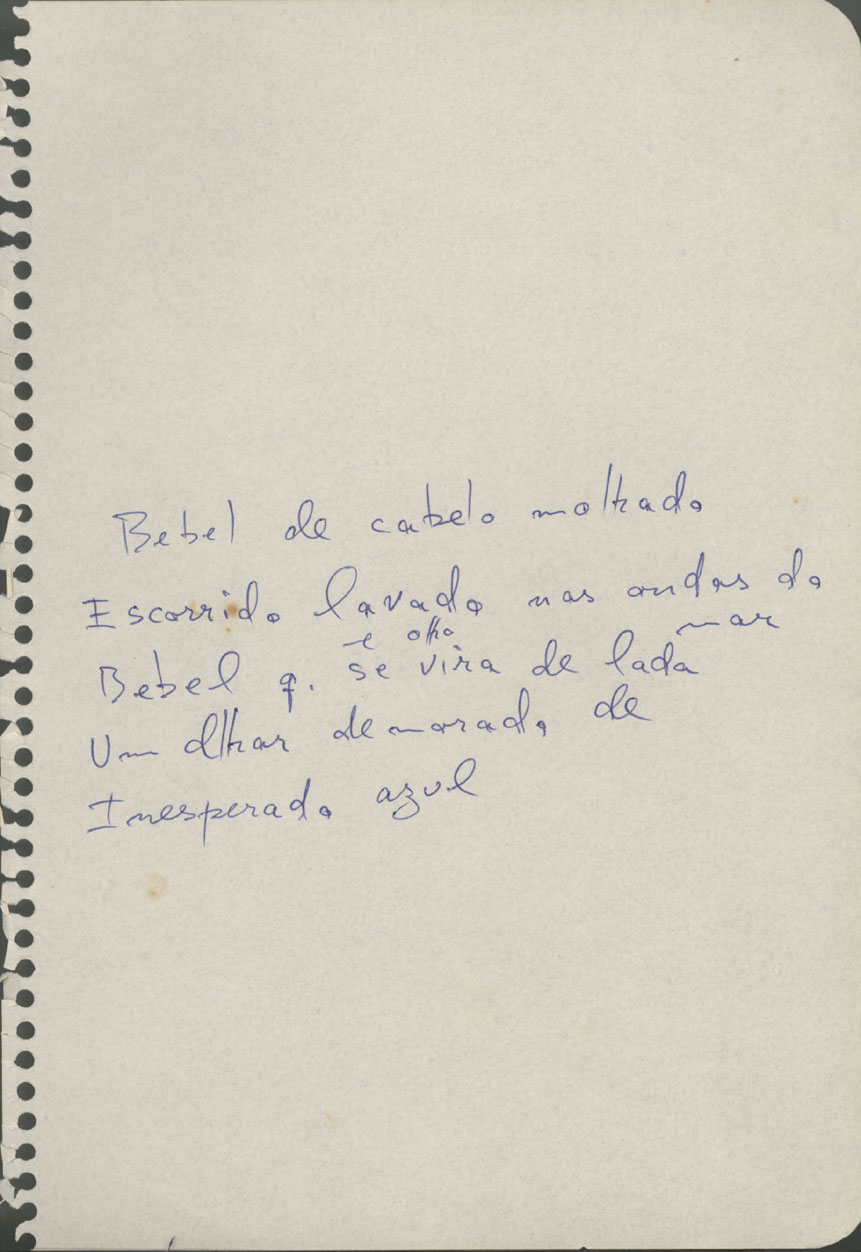 Bebel de cabelo molhado
Escorrido lavado nas ondas do
mar
e olha
Bebel q. se vira de lado
Um olhar demorado de
Inesperado azul